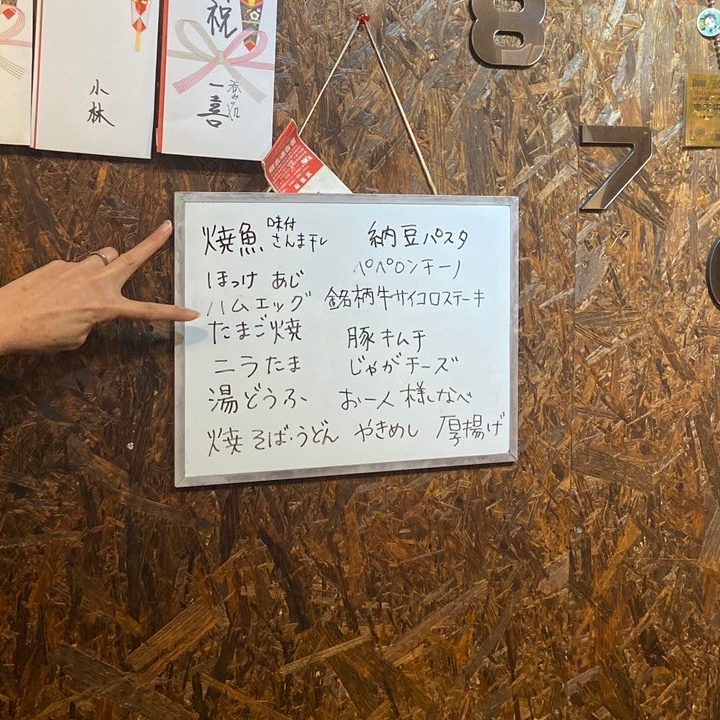 祝
小林
一喜
8
7
焼魚 味付さんま干し
ほっけ あじ
ハムエッグ
たまご焼
ニラたま
湯どうふ
焼そば・うどん
納豆パスタ
ペペロンチーノ
銘柄牛サイコロステーキ
豚キムチ
じゃがチーズ
お一人様なべ
やきめし 厚揚げ